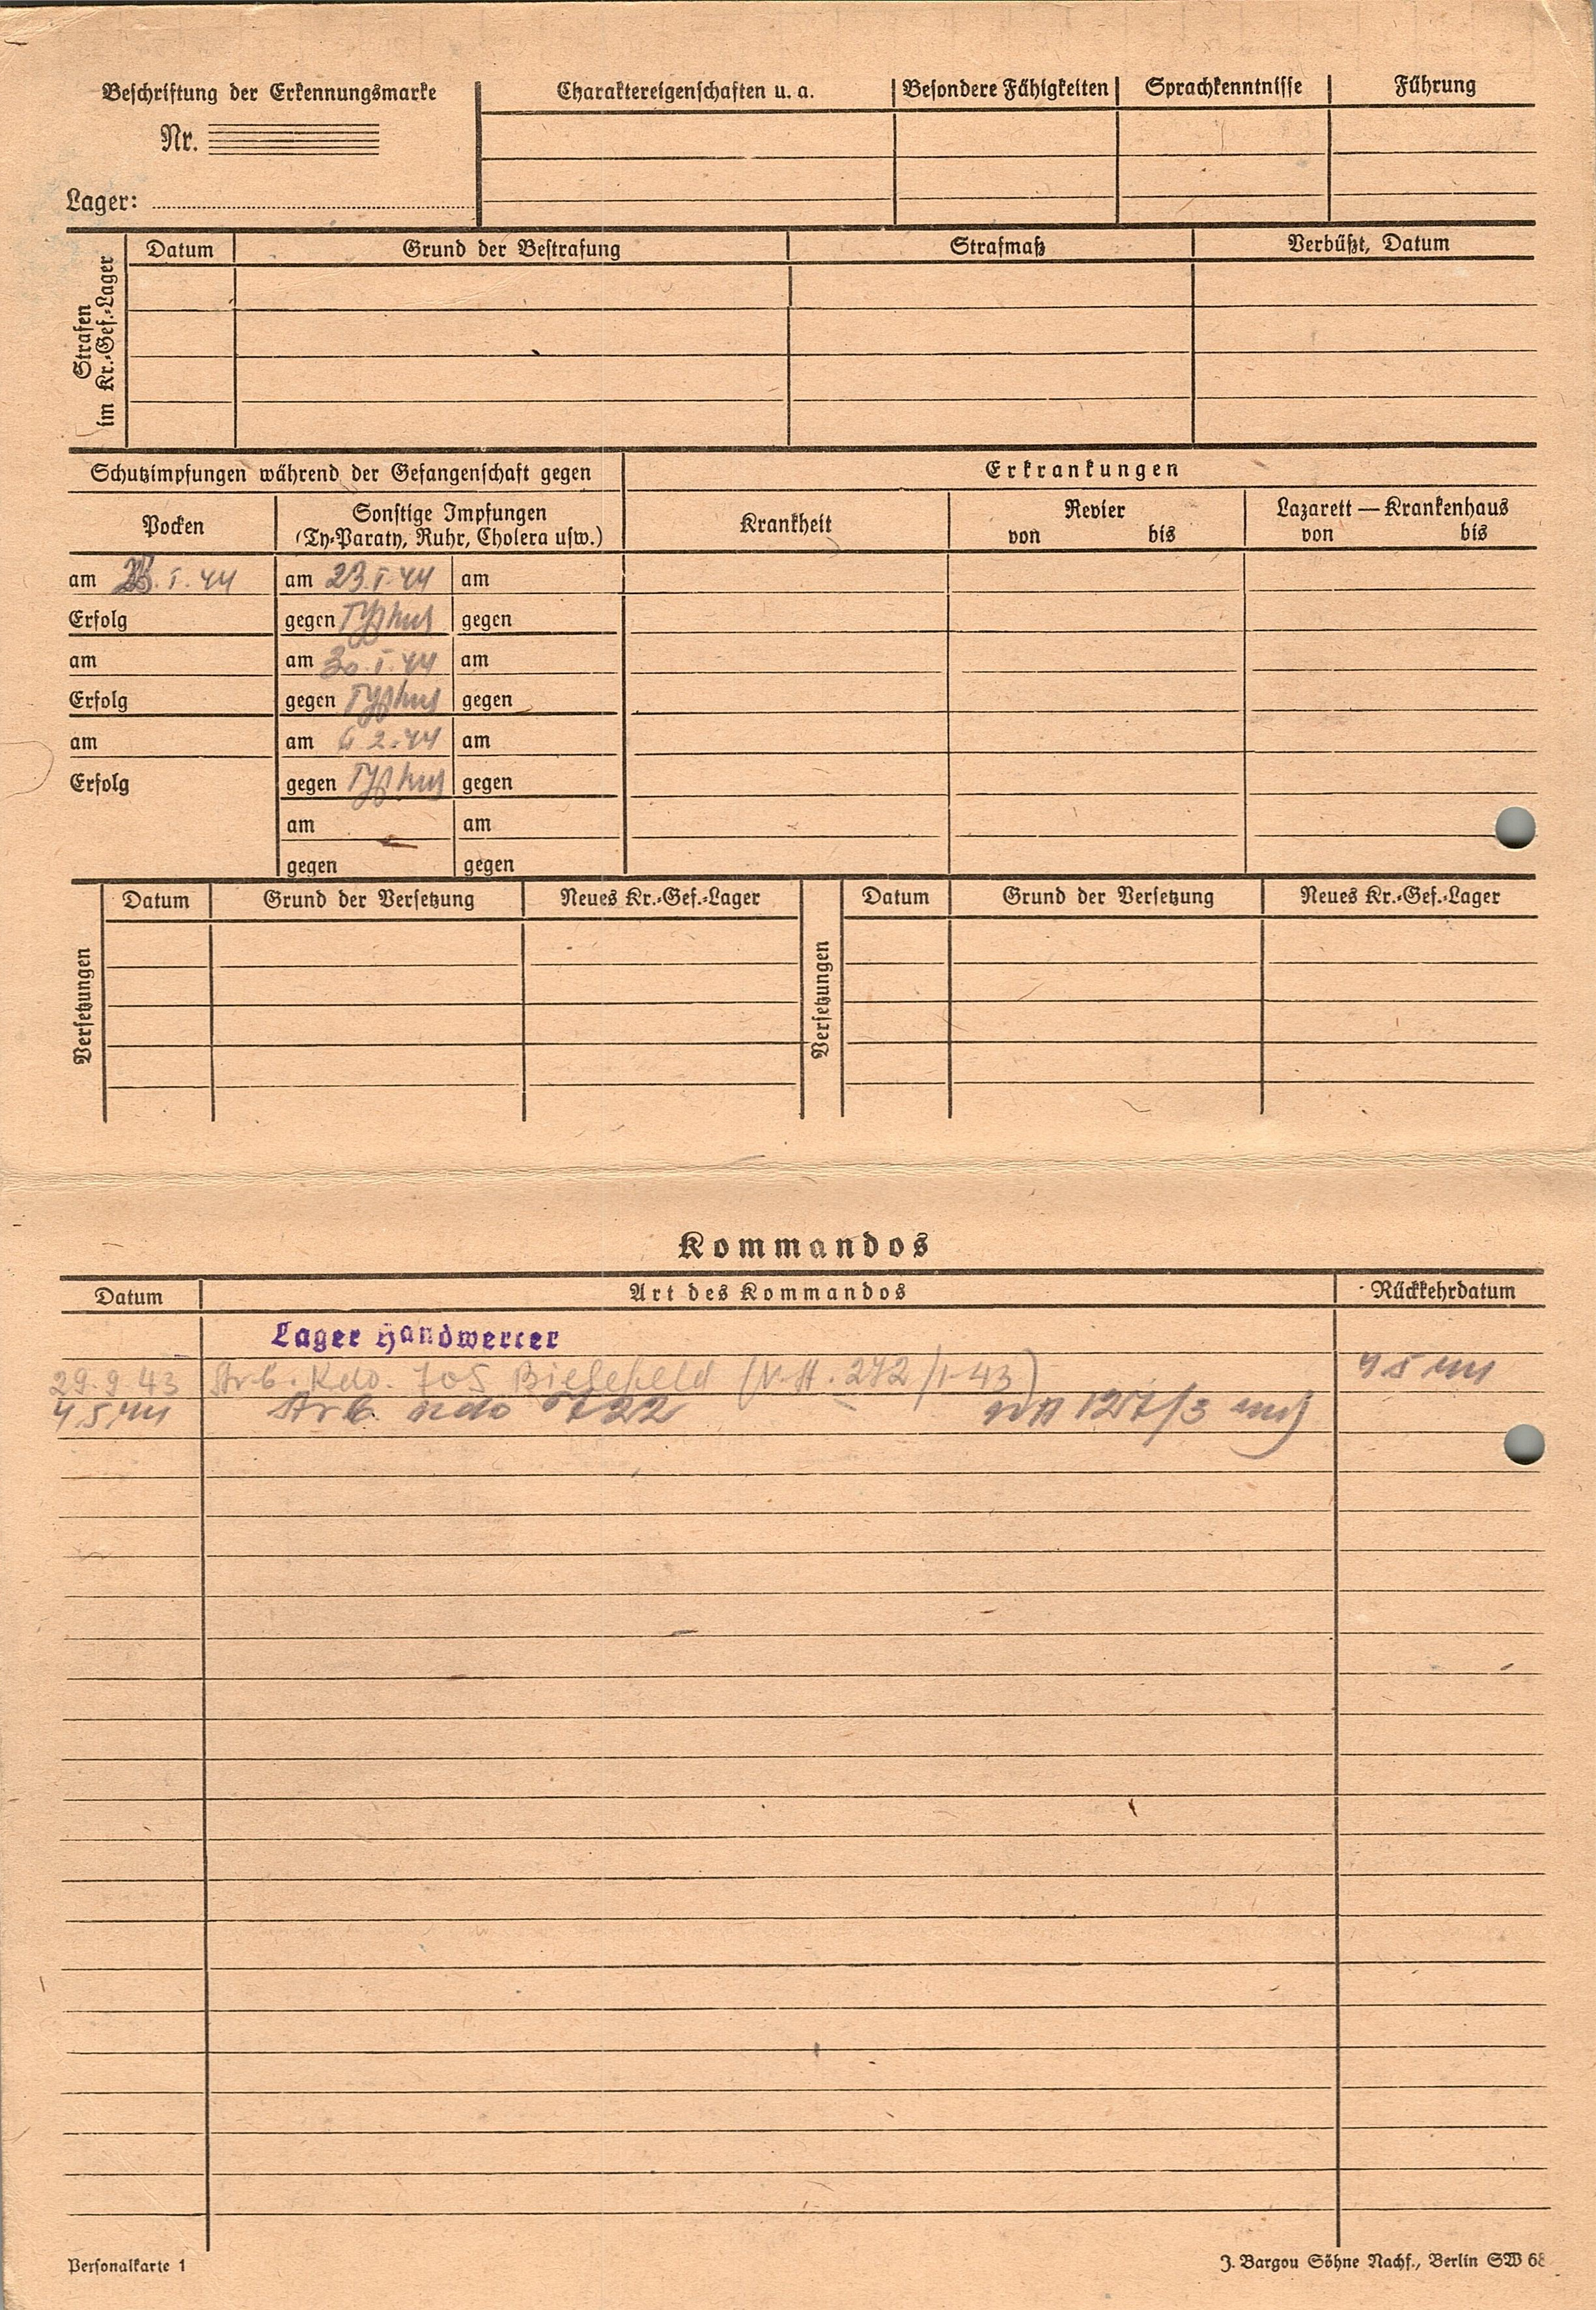 Beschriftung der Erkennungsmarke
Nr.
Lager:
Charaktereigenschaften u. a.
Besondere Fähigkeiten
Sprachkenntnisse
Führung
Strafen
im Kr.-Gef.-Lager
Datum
Grund der Bestrafung
Strafmaß
Verbüßt, Datum
Schutzimpfungen während der Gefangenschaft gegen
Erkrankungen
Pocken
Sonstige Impfungen
(Ty-Paraty, Ruhr, Cholera usw.)
Krankheit
Revier
von bis
Lazarett — Krankenhaus
von bis
am 23. I. 44 am 23. I. 44 am
Erfolg gegen Typhus gegen
am am 30. I. 44 am
Erfolg gegen Typhus gegen
am am 6 2. 44 am
Erfolg gegen Typhus gegen
am am
gegen gegen
Versetzungen
Datum Grund der Versetzung Neues Kr.-Gef.-Lager
Versetzungen
Datum Grund der Versetzung Neues Kr.-Gef.-Lager
Kommandos
Datum Art des Kommandos Rückkehrdatum
Lager Handwercer
29. 9. 43 Arb. Kdo. 705 Bielefeld (V. H. 272/1-43) 4 5 44
4 5 44 Arb. Kdo 722 127/3
Personalkarte 1
J. Bargou Söhne Nachf., Berlin SW 68